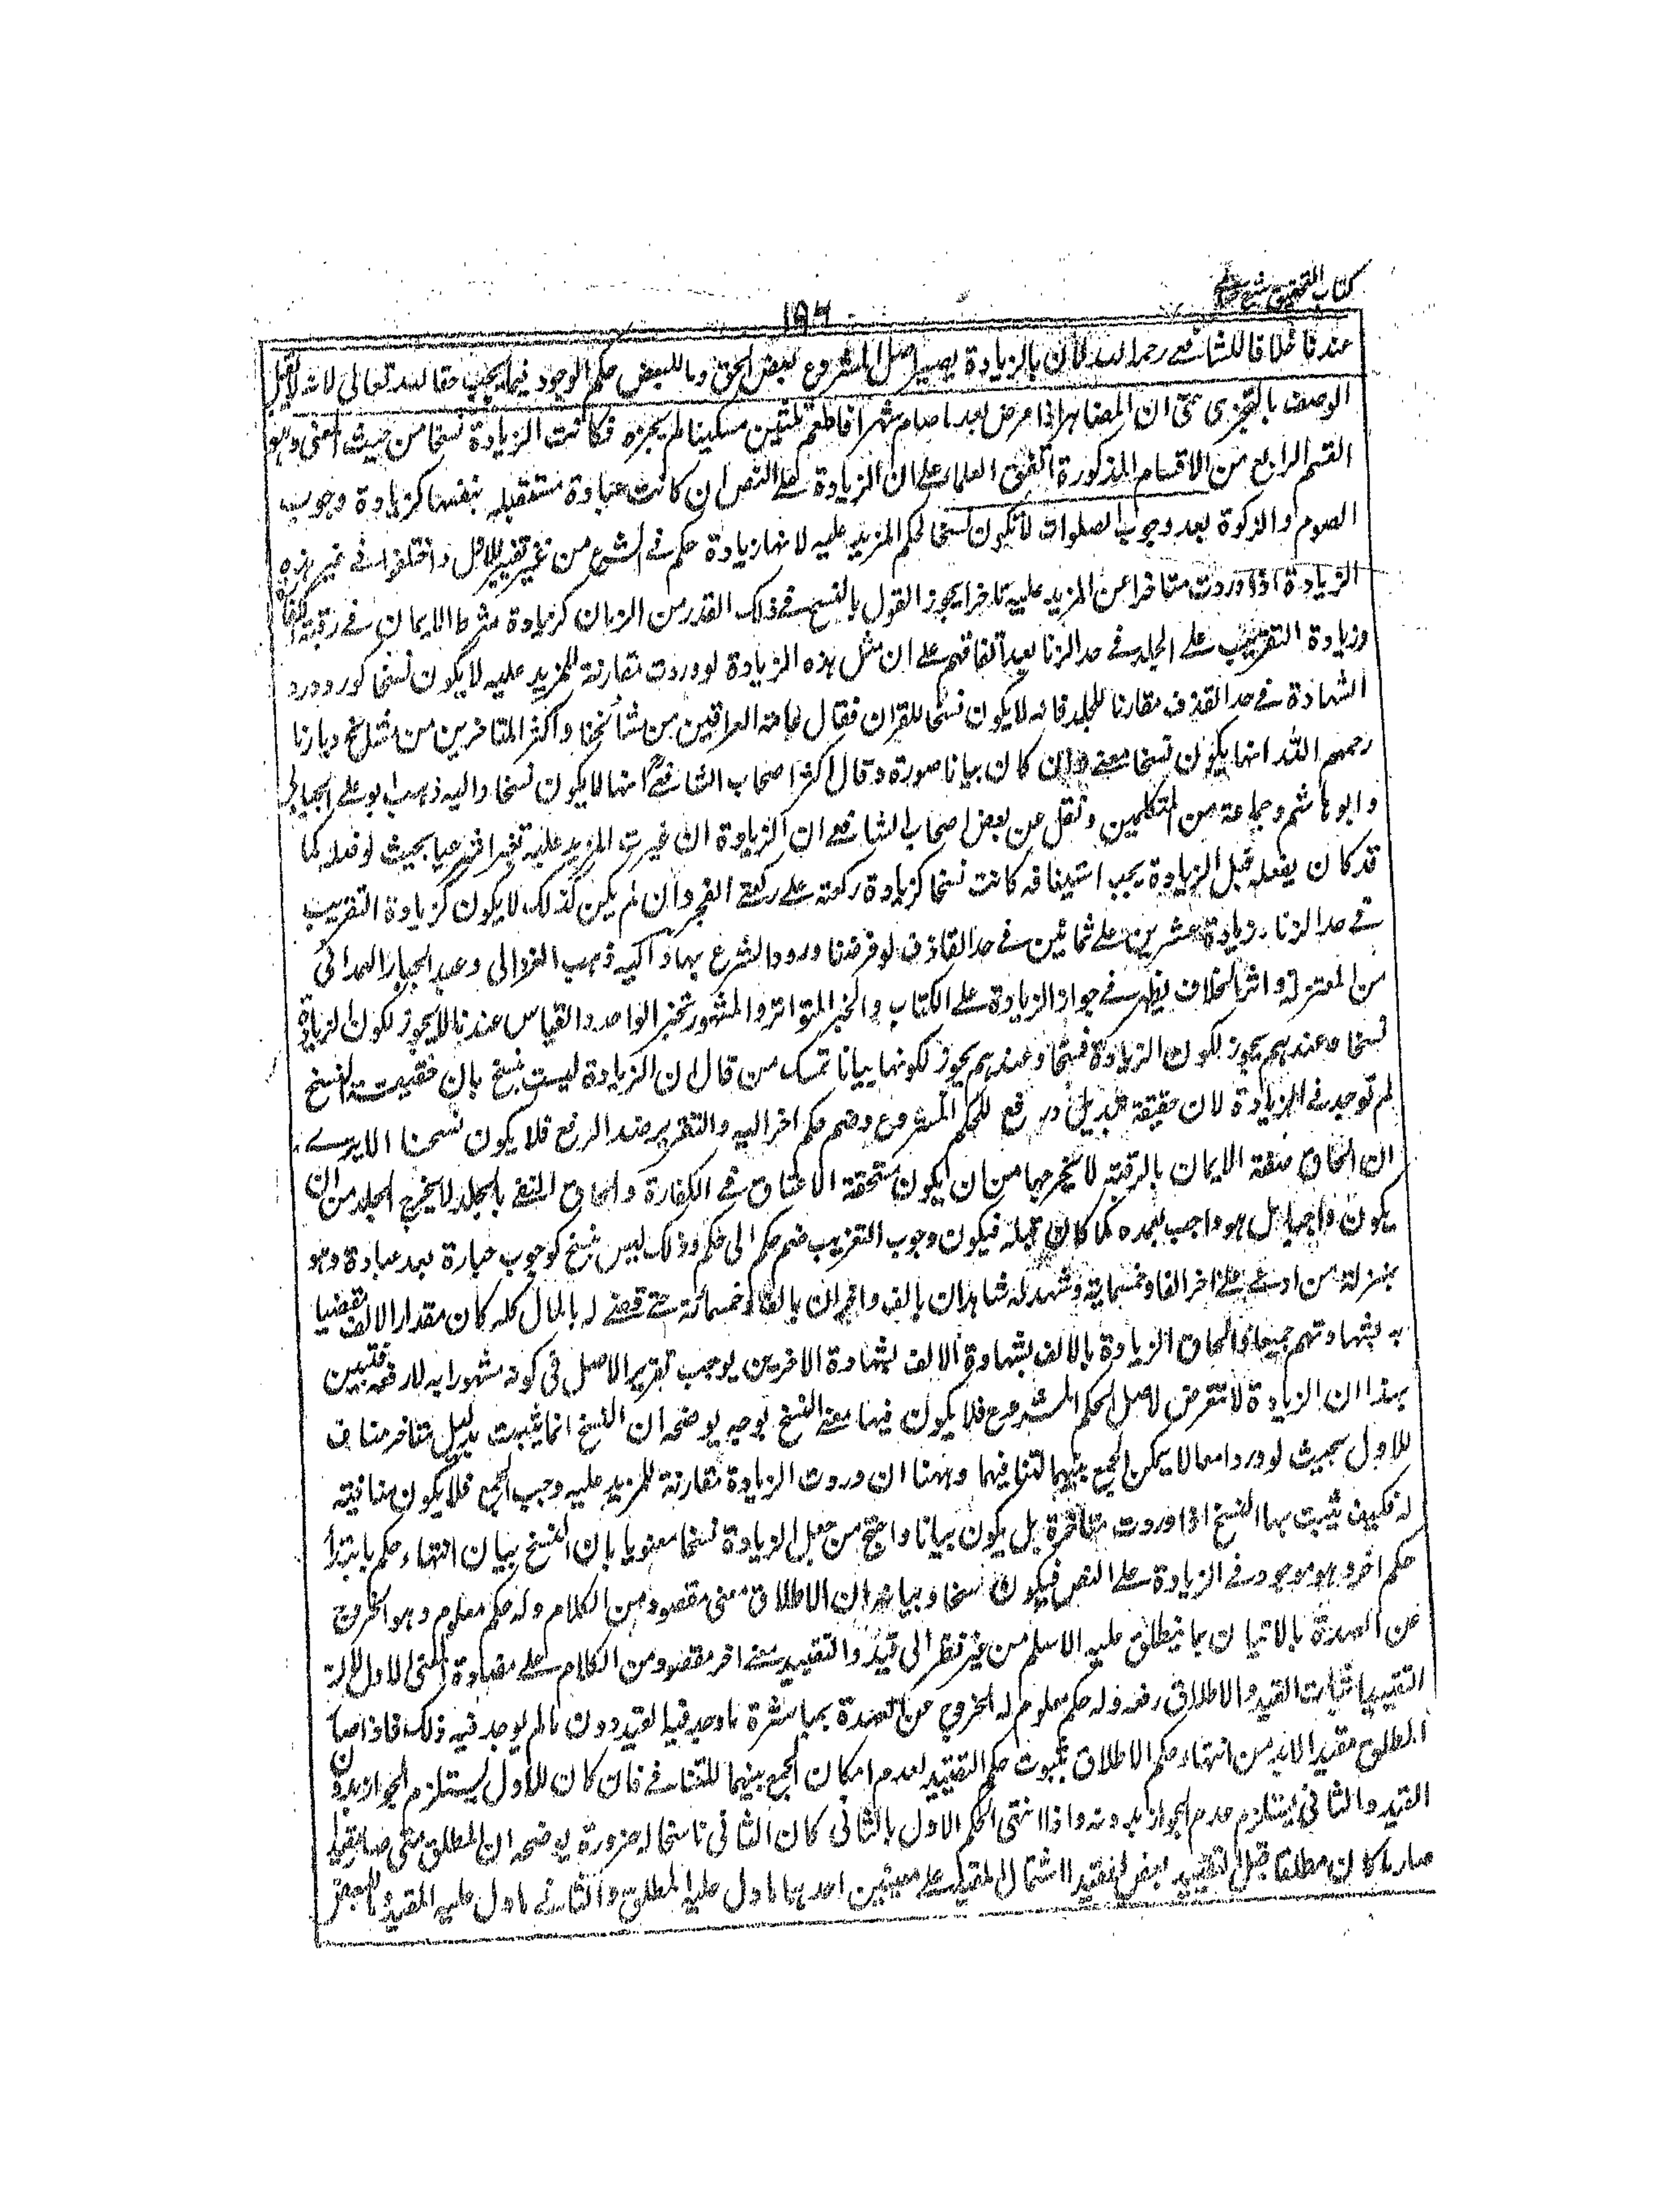 كتاب التحقيق شرح حسامي
١٨٦
عندنا خلافا للشافعي رحمه الله لان بالزيادة يصير اصل المشروع بعض الحق وما للبعض حكم الوجود فيما يجب حقا لله تعالى لانه لا يقبل
الوصف بالتجزي حتى ان المظاهر اذا مرض بعد ما صام شهرا فاطعم ثلثين مسكينا لم يجزه فكانت الزيادة نسخا من حيث المعنى وهو
القسم الرابع من الاقسام المذكورة اتفق العلماء على ان الزيادة على النص ان كانت عبادة مستقلة بنفسها كزيادة وجوب
الصوم والزكوة بعد وجوب الصلوات لا تكون نسخا لحكم المزيد عليه لانها زيادة حكم في الشرع من غير تغيير للاول واختلفوا في غير هذه
الزيادة اذا وردت متاخرا عن المزيد عليه تاخرا يجوز القول بالنسخ في ذلك القدر من الزمان كزيادة شرط الايمان في رقبة الكفارة
وزيادة التغريب على الجلد في حد الزنا بعد اتفاقهم على ان مثل هذه الزيادة لو وردت مقارنة للمزيد عليه لا يكون نسخا كورود رد
الشهادة في حد القذف مقارنا للجلد فانه لا يكون نسخا للقران فقال عامة العراقيين من مشائخنا واكثر المتاخرين من مشائخ ديارنا
رحمهم الله انها يكون نسخا معنى وان كان بيانا صورة وقال اكثر اصحاب الشافعي انها لا يكون نسخا واليه ذهب ابو علي الجبائي
وابو هاشم وجماعة من المتكلمين ونقل عن بعض اصحاب الشافعي ان الزيادة ان غيرت المزيد عليه تغيرا شرعيا بحيث لو فعله كما
قد كان يفعله قبل الزيادة يجب استينافه كانت نسخا كزيادة ركعة على ركعتي الفجر وان لم يكن كذلك لا يكون كزيادة التغريب
في حد الزنا وزيادة عشرين على ثمانين في حد القاذف لو فرضنا ورود الشرع بها واليه ذهب الغزالي وعبد الجبار الهمداني
من المعتزلة واثر الخلاف يظهر في جواز الزيادة على الكتاب والخبر المتواتر والمشهور بخبر الواحد والقياس عندنا لا يجوز لكون الزيادة
نسخا وعندهم يجوز لكون الزيادة نسخا وعندهم يجوز لكونها بيانا تمسك من قال ان الزيادة ليست بنسخ بان حقيقت النسخ
لم توجد في الزيادة لان حقيقة تبديل ورفع للحكم المشروع وضم حكم اخر اليه والتقرير ضد الرفع فلا يكون نسخا الا يرى
ان الحاق صفة الايمان بالرقبة لا يخرجها من ان يكون مستحقة الاعتاق في الكفارة والحاق النفي بالجلد لا يخرج الجلد من ان
يكون واجبا بل هو واجب بعده كما كان قبله فيكون وجوب التغريب ضم حكم الى حكم وذلك ليس بنسخ كوجوب عبادة بعد عبادة وهو
بمنزلة من ادعى على اخر الفا وخمسماية وشهد له شاهدان بالف واخران بالف وخمسمائة حتى قضى له بالمال كله كان مقدار الالف مقضيا
به بشهادتهم جميعا والحاق الزيادة بالالف بشهادة الالف بشهادة الاخرين يوجب تقرير الاصل في كونه مشهودا به لا رفعه فتبين
بهذا ان الزيادة لا تتعرض لاصل الحكم المشروع فلا يكون فيها معنى النسخ بوجه يوضحه ان النسخ انما يثبت بدليل متاخر مناف
للاول بحيث لو وردا معا لا يمكن الجمع بينهما لتنافيهما وههنا ان وردت الزيادة مقارنة للمزيد عليه وجب الجمع فلا يكون منافية
له فكيف يثبت بها النسخ اذا وردت متاخرة بل يكون بيانا واحتج من جعل الزيادة نسخا معنويا بان النسخ بيان انتهاء حكم بابتداء
حكم اخر وهو موجود في الزيادة على النص فيكون نسخا وبيانه ان الاطلاق معنى مقصود من الكلام وله حكم معلوم وهو الخروج
عن العهدة بالاتيان بما ينطلق عليه الاسم من غير نظر الى قيد والتقييد معنى اخر مقصود من الكلام على مضادة المعنى الاول لان
التقييد اثبات القيد والاطلاق رفعه وله حكم معلوم له الخروج عن العهدة بمباشرة ما وجد فيه القيد دون ما لم يوجد فيه ذلك فاذا صار
المطلق مقيدا لا بد من انتهاء حكم الاطلاق بثبوت حكم التقييد لعدم امكان الجمع بينهما للتنافي فان كان الاول يستلزم الجواز بدون
القيد والثاني يستلزم عدم الجواز بدونه واذا انتهى الحكم الاول بالثاني كان الثاني ناسخا له ضرورة يوضحه ان المطلق متى صار مقيدا
صار ما كان مطلقا قبل التقييد بعض المقيد لاشتمال المقيد على معنيين احدهما ما دل عليه المطلق والثاني ما دل عليه المقيد وللبعض